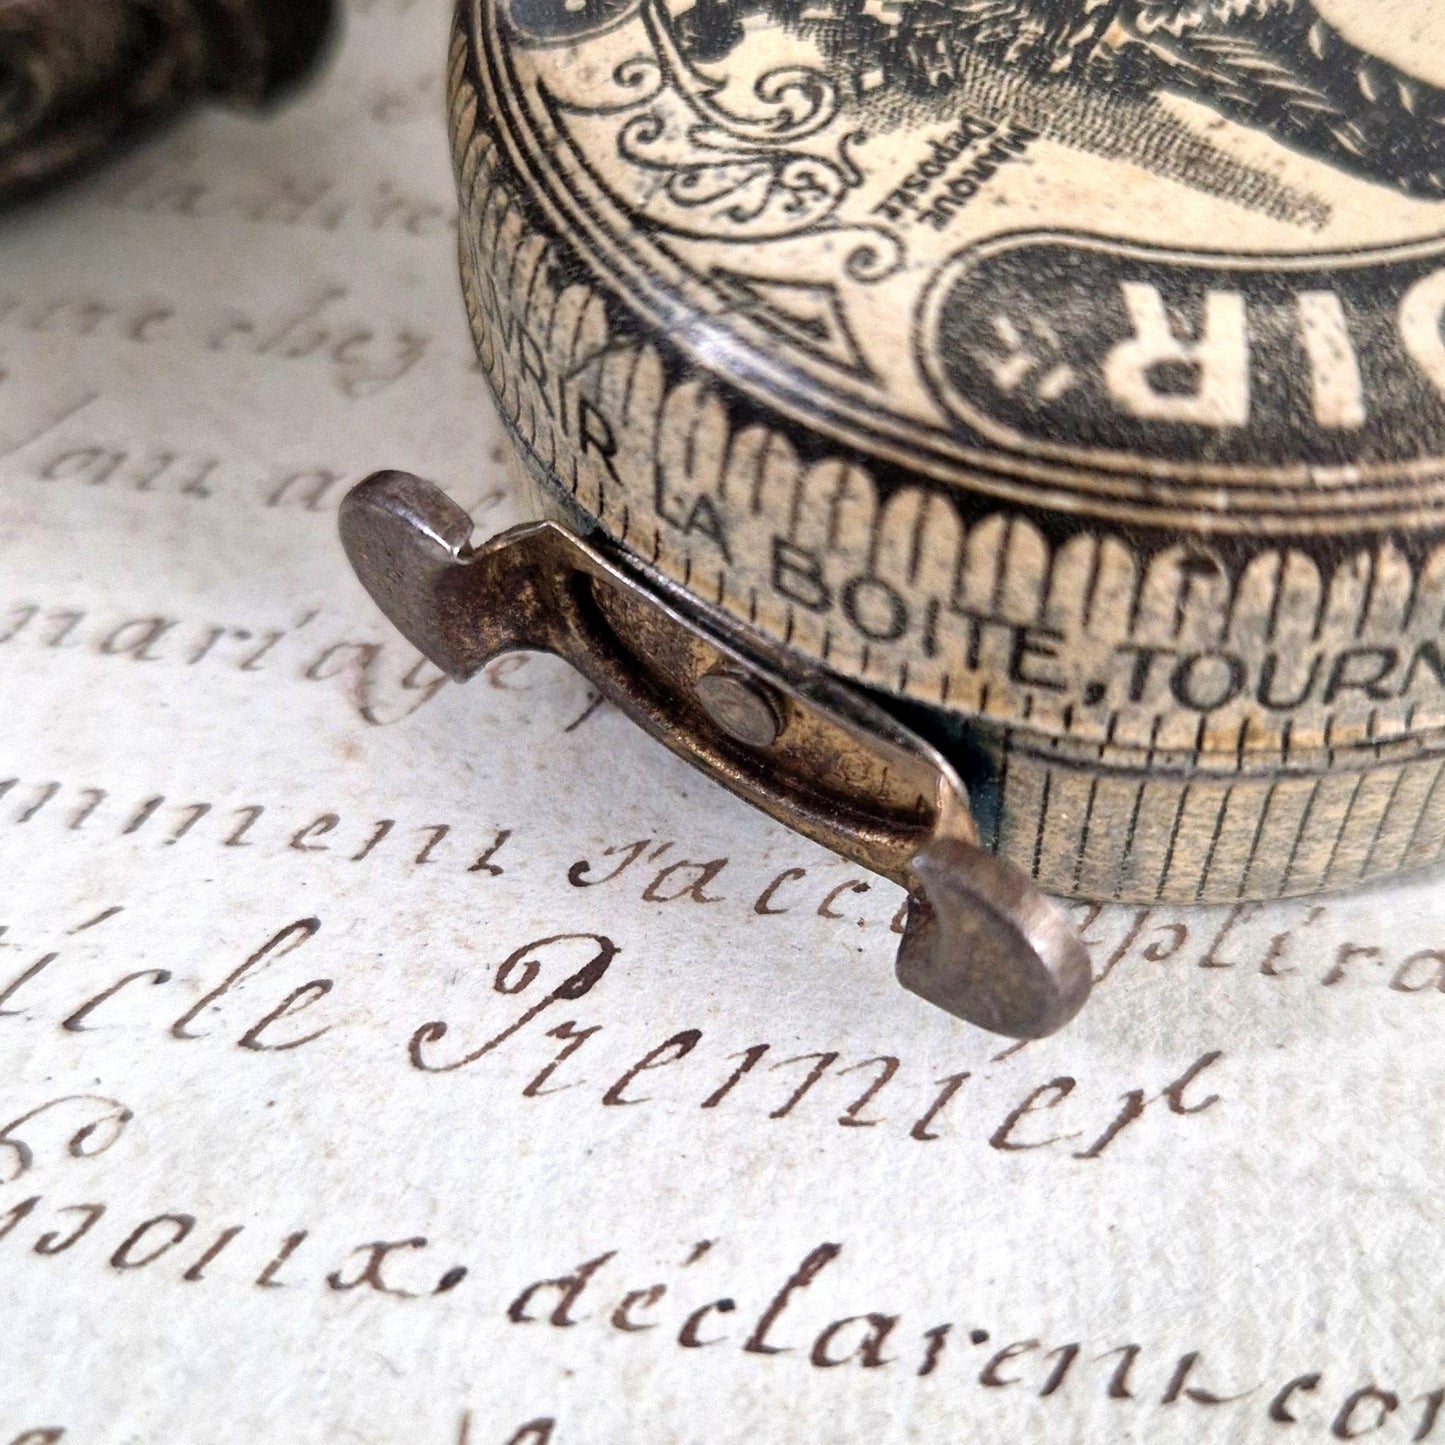 MARQUE
DéPOSÉE
IR
RIR LA BOITE, TOURN
chez
mariage,
mment s'accomplira
ticle Premier
poux, déclarent co